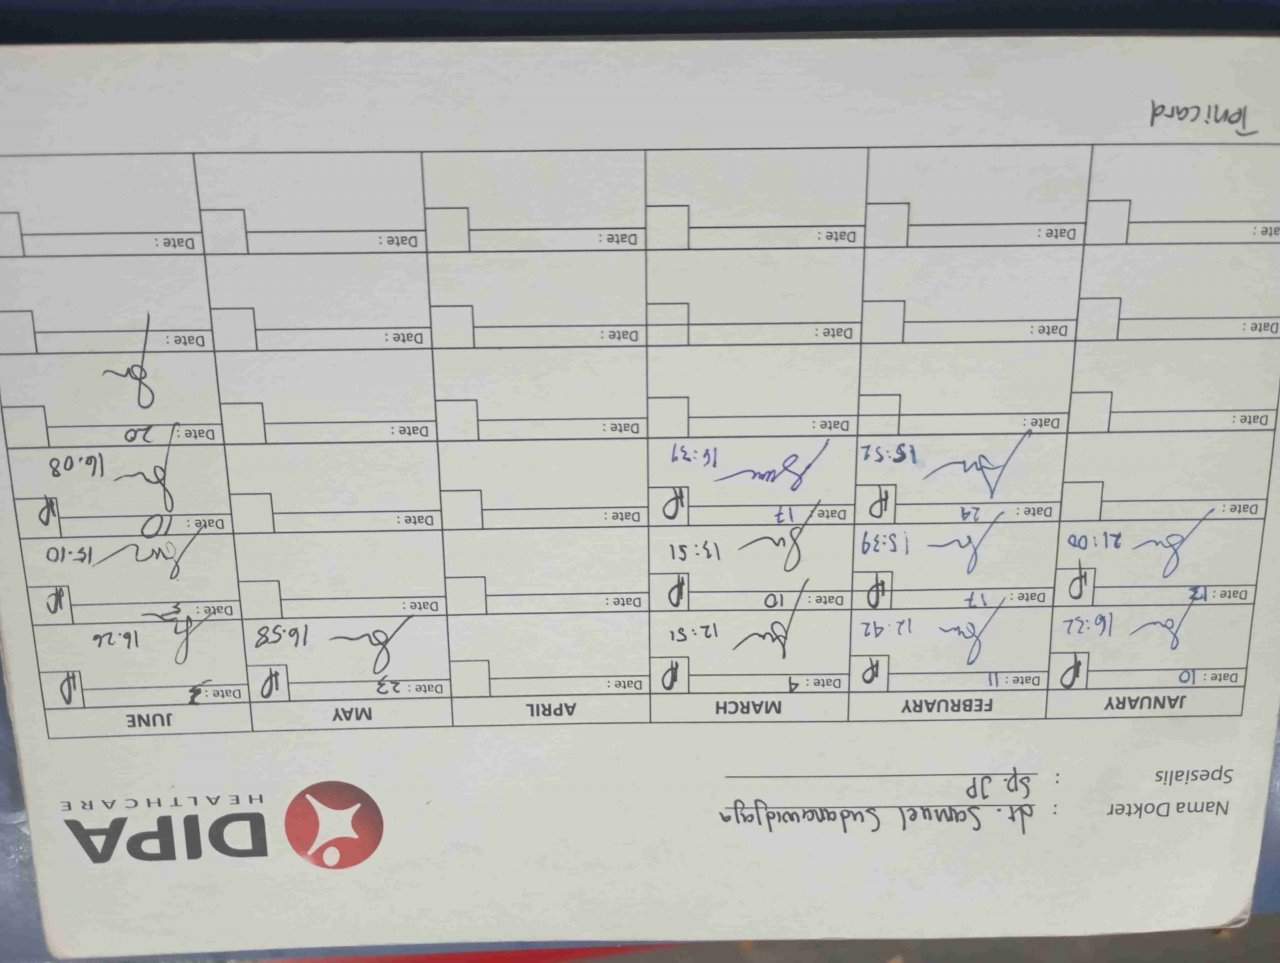 DIPA
HEALTHCARE
Nama Dokter : dr. Samuel Sudanawidjaja
Spesialis : Sp. JP
JANUARY FEBRUARY MARCH APRIL MAY JUNE
Date : 10 Date : 11 Date : 9 Date : Date : 23 Date :
16:32 12.42 12:51 16.58 16.26
Date : Date : 17 Date : 10 Date : Date : Date : 3
21:00 15:39 13:51 15.10
Date : Date : 29 Date : 17 Date : Date : Date : 10
15:52 16:39 16.08
Date : Date : Date : Date : Date : Date : 20
Date : Date : Date : Date : Date : Date :
Date : Date : Date : Date : Date : Date :
Tonicard